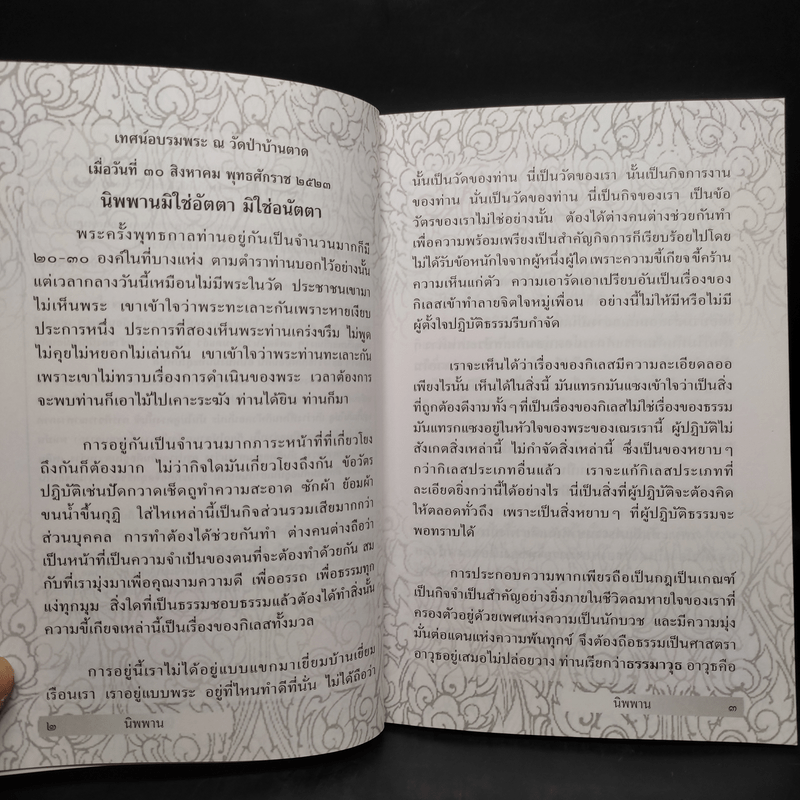 เทศน์อบรมพระ ณ วัดป่าบ้านตาด
เมื่อวันที่ ๓๐ สิงหาคม พุทธศักราช ๒๕๒๓
นิพพานมิใช่อัตตา มิใช่อนัตตา
พระครั้งพุทธกาลท่านอยู่กันเป็นจำนวนมากก็มี
๒๐-๓๐ องค์ในที่บางแห่ง ตามตำราท่านบอกไว้อย่างนั้น
แต่เวลากลางวันนี้เหมือนไม่มีพระในวัด ประชาชนเขามา
ไม่เห็นพระ เขาเข้าใจว่าพระทะเลาะกันเพราะหายเงียบ
ประการหนึ่ง ประการที่สองเห็นพระท่านเคร่งขรึม ไม่พูด
ไม่คุยไม่หยอกไม่เล่นกัน เขาเข้าใจว่าพระท่านทะเลาะกัน
เพราะเขาไม่ทราบเรื่องการดำเนินของพระ เวลาต้องการ
จะพบท่านก็เอาไม้ไปเคาะระฆัง ท่านได้ยิน ท่านก็มา
การอยู่กันเป็นจำนวนมากภาระหน้าที่ที่เกี่ยวโยง
ถึงกันก็ต้องมาก ไม่ว่ากิจใดมันเกี่ยวโยงถึงกัน ข้อวัตร
ปฏิบัติเช่นปัดกวาดเช็ดถูทำความสะอาด ซักผ้า ย้อมผ้า
ขนน้ำขึ้นกุฏิ ใส่ไหเหล่านี้เป็นกิจส่วนรวมเสียมากกว่า
ส่วนบุคคล การทำต้องได้ช่วยกันทำ ต่างคนต่างถือว่า
เป็นหน้าที่เป็นความจำเป็นของตนที่จะต้องทำด้วยกัน สม
กับที่เรามุ่งมาเพื่อคุณงามความดี เพื่ออรรถ เพื่อธรรมทุก
แง่ทุกมุม สิ่งใดที่เป็นธรรมชอบธรรมแล้วต้องได้ทำสิ่งนั้น
ความขี้เกียจเหล่านี้เป็นเรื่องของกิเลสทั้งมวล
การอยู่นี้เราไม่ได้อยู่แบบแขกมาเยี่ยมบ้านเยี่ยม
เรือนเรา เราอยู่แบบพระ อยู่ที่ไหนทำดีที่นั้น ไม่ได้ถือว่า
๒ นิพพาน
นั้นเป็นวัดของท่าน นี่เป็นวัดของเรา นั้นเป็นกิจการงาน
ของท่าน นั่นเป็นวัดของท่าน นี่เป็นกิจของเรา เป็นข้อ
วัตรของเราไม่ใช่อย่างนั้น ต้องได้ต่างคนต่างช่วยกันทำ
เพื่อความพร้อมเพรียงเป็นสำคัญกิจการก็เรียบร้อยไปโดย
ไม่ได้รับข้อหนักใจจากผู้หนึ่งผู้ใด เพราะความขี้เกียจ ขี้คร้าน
ความเห็นแก่ตัว ความเอารัดเอาเปรียบอันเป็นเรื่องของ
กิเลสเข้าทำลายจิตใจหมู่เพื่อน อย่างนี้ไม่ให้มีหรือไม่มี
ผู้ตั้งใจปฏิบัติธรรมรีบกำจัด
เราจะเห็นได้ว่าเรื่องของกิเลสมีความละเอียดลออ
เพียงไรนั้น เห็นได้ในสิ่งนี้ มันแทรกมันแซงเข้าใจว่าเป็นสิ่ง
ที่ถูกต้องดีงาม ทั้ง ๆ ที่เป็นเรื่องของกิเลสไม่ใช่เรื่องของธรรม
มันแทรกแซงอยู่ในหัวใจของพระของเณรเรานี้ ผู้ปฏิบัติไม่
สังเกตสิ่งเหล่านี้ ไม่กำจัดสิ่งเหล่านี้ ซึ่งเป็นของหยาบ ๆ
กว่ากิเลสประเภทอื่นแล้ว เราจะแก้กิเลสประเภทที่
ละเอียดยิ่งกว่านี้ได้อย่างไร นี่เป็นสิ่งที่ผู้ปฏิบัติจะต้องคิด
ให้ตลอดทั่วถึง เพราะเป็นสิ่งหยาบ ๆ ที่ผู้ปฏิบัติธรรมจะ
พอทราบได้
การประกอบความพากเพียรถือเป็นกฎเป็นเกณฑ์
เป็นกิจจำเป็นสำคัญอย่างยิ่งภายในชีวิตลมหายใจของเราที่
ครองตัวอยู่ด้วยเพศแห่งความเป็นนักบวช และมีความมุ่ง
มั่นต่อแดนแห่งความพ้นทุกข์ จึงต้องถือธรรมเป็นศาสตรา
อาวุธอยู่เสมอไม่ปล่อยวาง ท่านเรียกว่าธรรมาวุธ อาวุธคือ
นิพพาน ๓